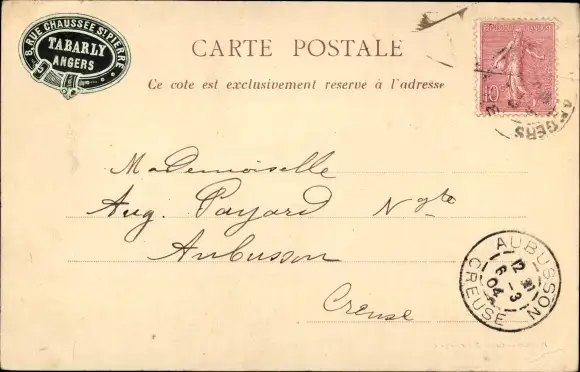 8, RUE CHAUSSÉE ST PIERRE
TABARLY
ANGERS
CARTE POSTALE
Ce côté est exclusivement réservé à l'adresse
10
ANGERS
Mademoiselle
Aug. Payard Ngte
Aubusson
Creuse
AUBUSSON
12
6 - 3
04
CREUSE